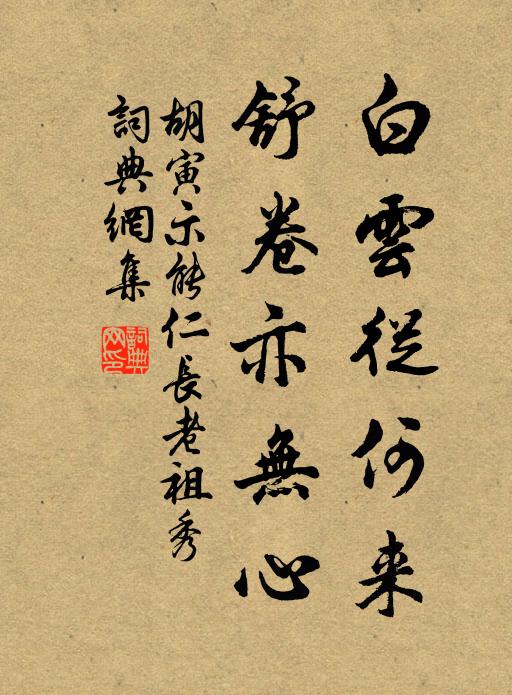 白雲從何来
舒卷亦無心
胡寅示能仁長老祖秀
詞典網集
詞典网印